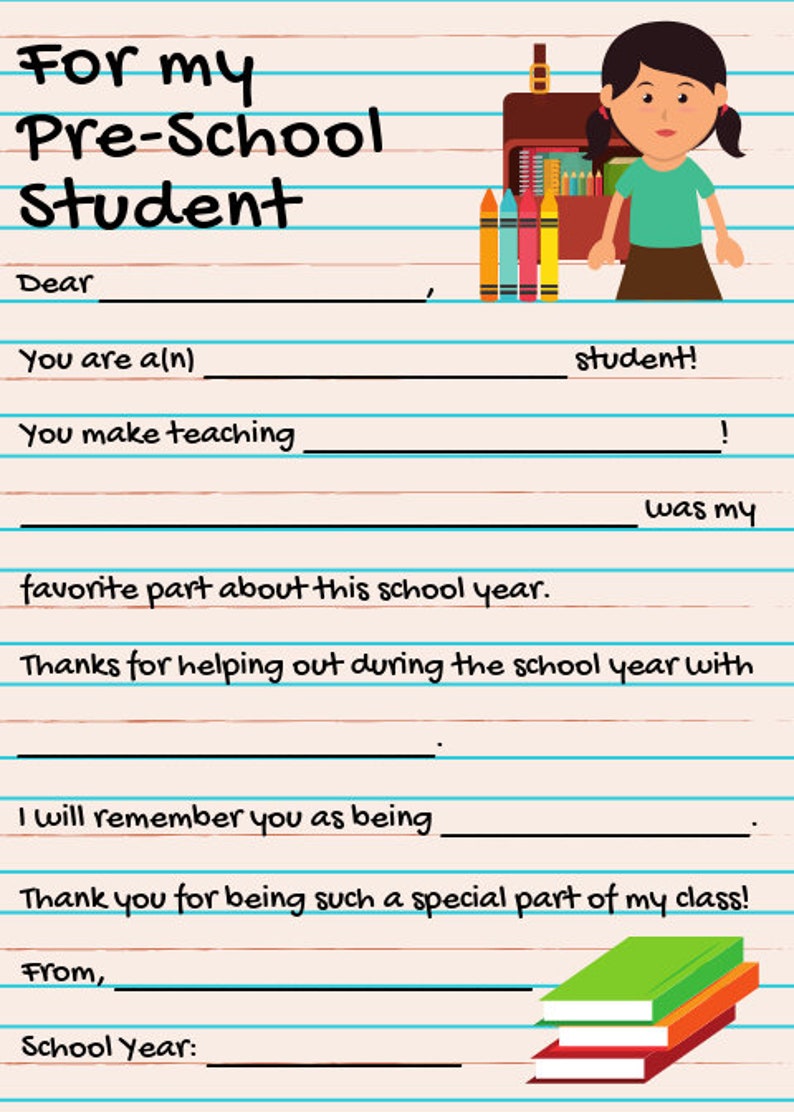 For my
Pre-School
Student
Dear ____________________,
You are a(n) ____________________ student!
You make teaching ____________________!
____________________ was my
favorite part about this school year.
Thanks for helping out during the school year with
____________________.
I will remember you as being ____________________.
Thank you for being such a special part of my class!
From, ____________________
School Year: ____________________